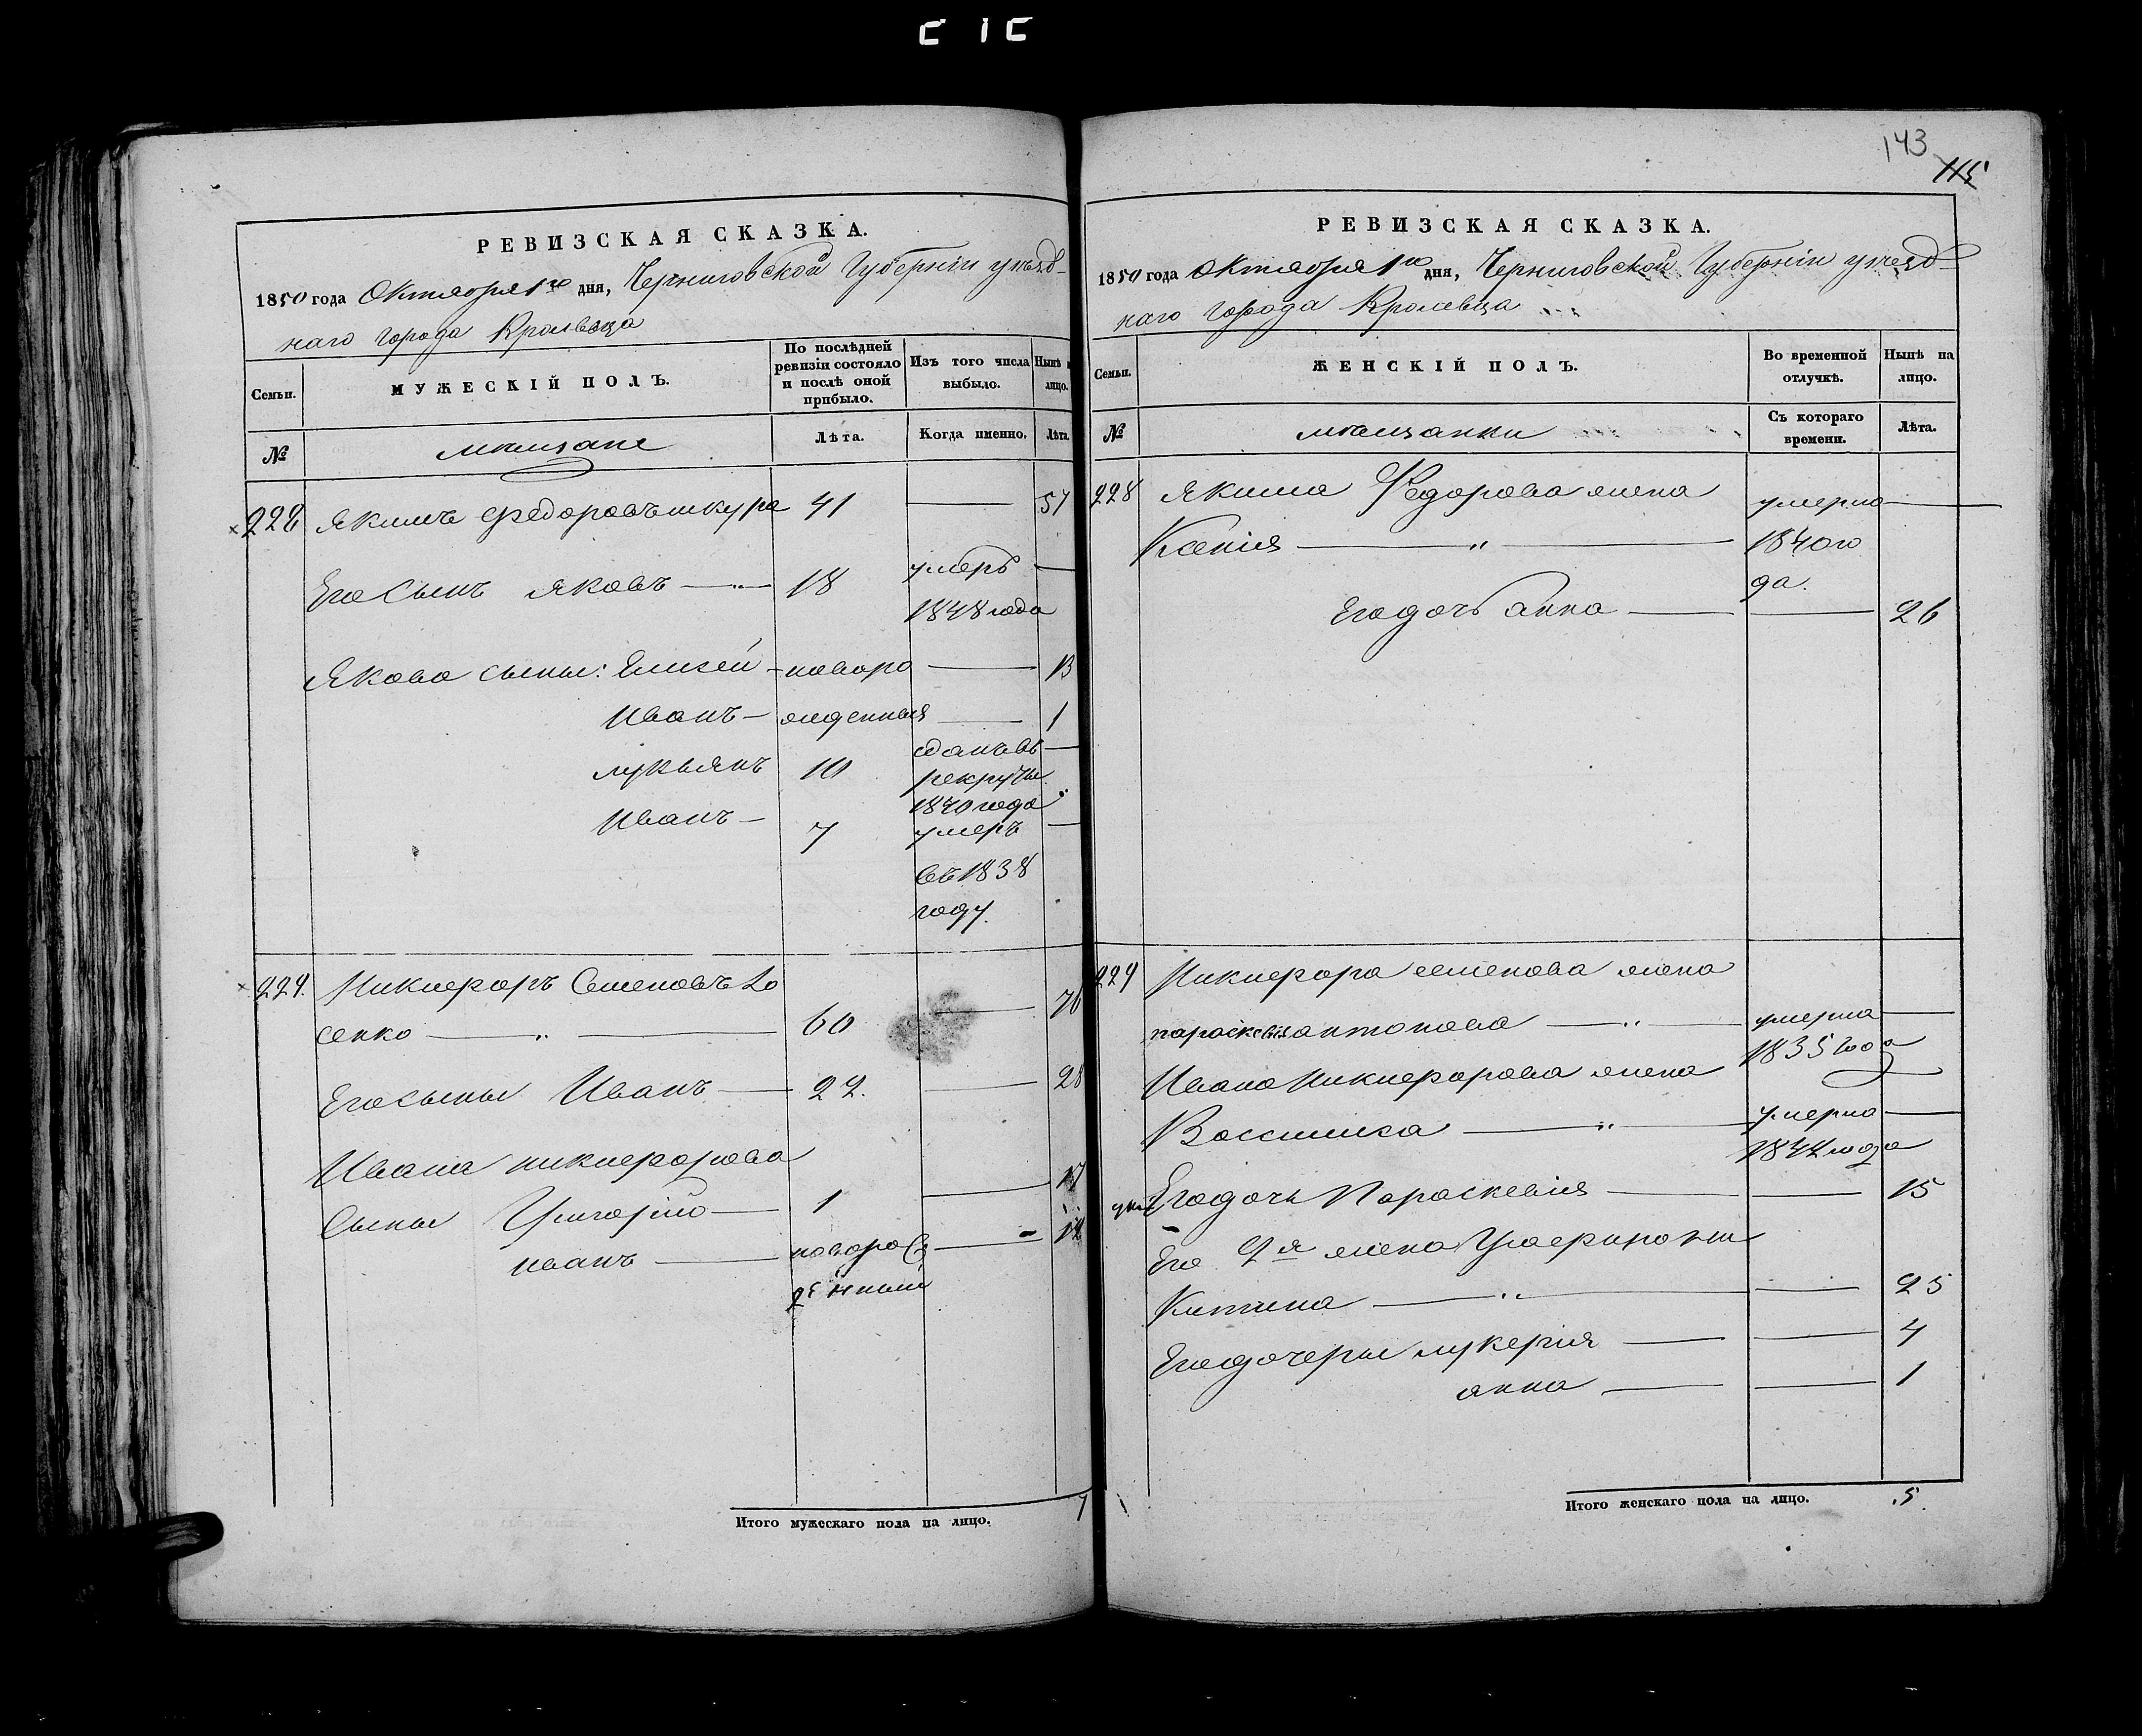 143
115
РЕВИЗСКАЯ СКАЗКА.
1850 года Октября 1го дня, Черниговской Губернiи уѣзд-
наго города Кролевца
Семьи.
МУЖЕСКІЙ ПОЛЪ.
По послѣдней ревизіи состояло и послѣ оной прибыло.
Изъ того числа выбыло.
Нынѣ на лицо.
№
мѣщане
Лѣта.
Когда именно.
Лѣта.
228 Якимъ Федоровъ шкура 41 — 57
Его Сынъ Яковъ — 18 умеръ —
1848 года
Якова сыны: Елисей — новоро — 13
Иванъ — жденныя — 1
Лукьянъ 10 сданъ въ —
рекруты
1840 года
Иванъ — 7 умеръ —
въ 1838
году.
229. Никифоръ Семеновъ Ло
сенко — 60 — 76
Его сыны Иванъ — 22. — 28
Ивана никифорова
Сыны Григорій — 1 — 17
иванъ — новорож — 12
денный
Итого мужескаго пола на лицо. 7
РЕВИЗСКАЯ СКАЗКА.
1850 года Октября 1го дня, Черниговской Губерніи уѣзд-
наго города Кролевца
Семьи.
ЖЕНСКІЙ ПОЛЪ.
Во временной отлучкѣ.
Нынѣ на лицо.
№
мѣщанки
Съ котораго времени.
Лѣта.
228 Якима Федорова жена умерла —
Ксенія — 1840 го
да.
Его дочь анна — — 26
229 Никифора семенова жена
параскевія антонова — умерла —
1835 года
Ивана Никифорова жена
Вассилиса — умерла —
1842 года
Его дочь Параскевія — — 15
Его 2я жена
— — 25
Его дочери лукерія — — 4
анна — — 1
Итого женскаго пола на лицо. 5.